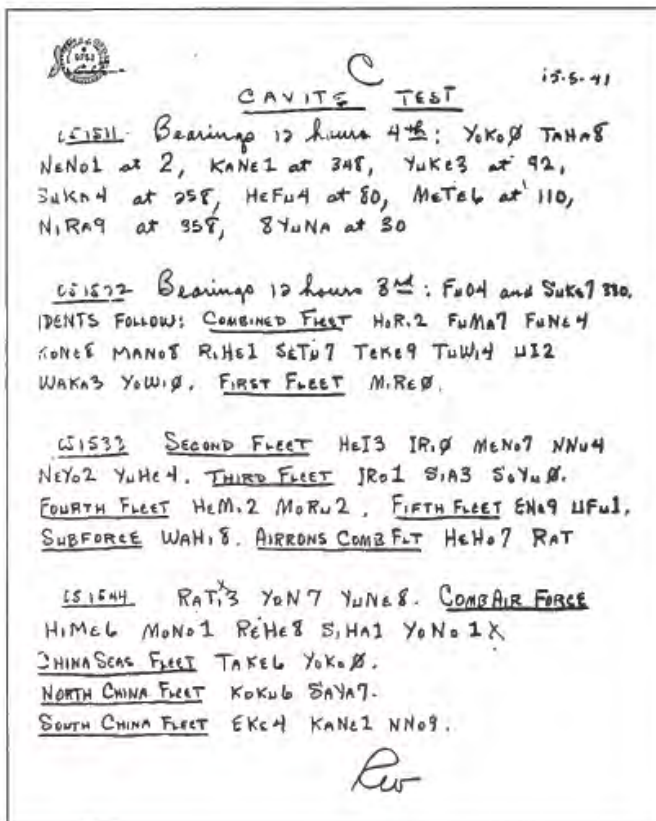 C
15-5-41
CAVITE TEST
CS1511 Bearings 12 hours 4th: YoKoØ TAHA8
NeNo1 at 2, KANE1 at 348, YuKe3 at 92,
SuKA4 at 258, HeFu4 at 80, MeTe6 at 110,
NiRA9 at 358, 8YuNA at 30
CS1522 Bearings 12 hours 3rd: FuO4 and SuKe7 330.
IDENTS FOLLOW: COMBINED FLEET HoRi2 FuMA7 FuNe4
KoNe8 MANo8 RiHe1 SeTu7 TeKe9 TuWi4 UI2
WAKA3 YoWiØ. FIRST FLEET MiReØ.
CS1533 SECOND FLEET HeI3 IRiØ MeNo7 NNu4
NeYo2 YuHe4. THIRD FLEET IRo1 SiA3 SoYuØ.
FOURTH FLEET HeMi2 MoRu2, FIFTH FLEET ENo9 UFu1,
SUBFORCE WAHi8. AIRRONS COMB FLT HeHo7 RAT
CS1544 RATi3 YoN7 YuNe8. COMBAIR FORCE
HiMe6 MoNo1 ReHe8 SiHA1 YoNo1X
CHINA SEAS FLEET TAKE6 YoKoØ.
NORTH CHINA FLEET KoKu6 SAYA7.
SOUTH CHINA FLEET EKe4 KANe1 NNo9.